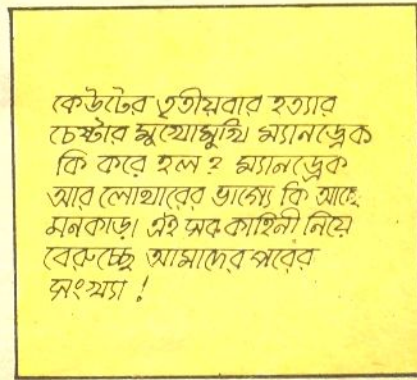 কেউটের তৃতীয়বার হত্যার
চেষ্টার মুখোমুখি ম্যানড্রেক
কি করে হল? ম্যানড্রেক
আর লোথারের ভাগ্যে কি আছে
মনকাড়া এই সব কাহিনী নিয়ে
বেরুচ্ছে আমাদের পরের
সংখ্যা!